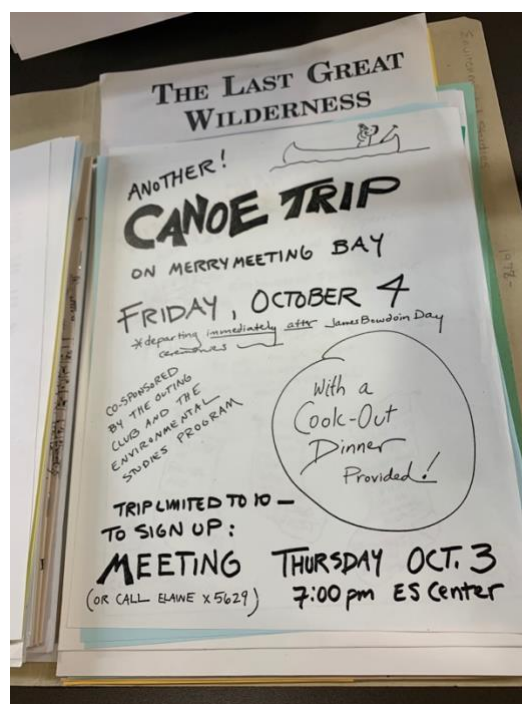 THE LAST GREAT
WILDERNESS
ANOTHER!
CANOE TRIP
ON MERRYMEETING BAY
FRIDAY, OCTOBER 4
*departing immediately after James Bowdoin Day
ceremonies
CO-SPONSORED
BY THE OUTING
CLUB AND THE
ENVIRONMENTAL
STUDIES PROGRAM
With a
Cook-Out
Dinner
Provided!
TRIP LIMITED TO 10 —
TO SIGN UP:
MEETING THURSDAY OCT. 3
(OR CALL ELAINE x5629) 7:00 pm ES Center
1978-